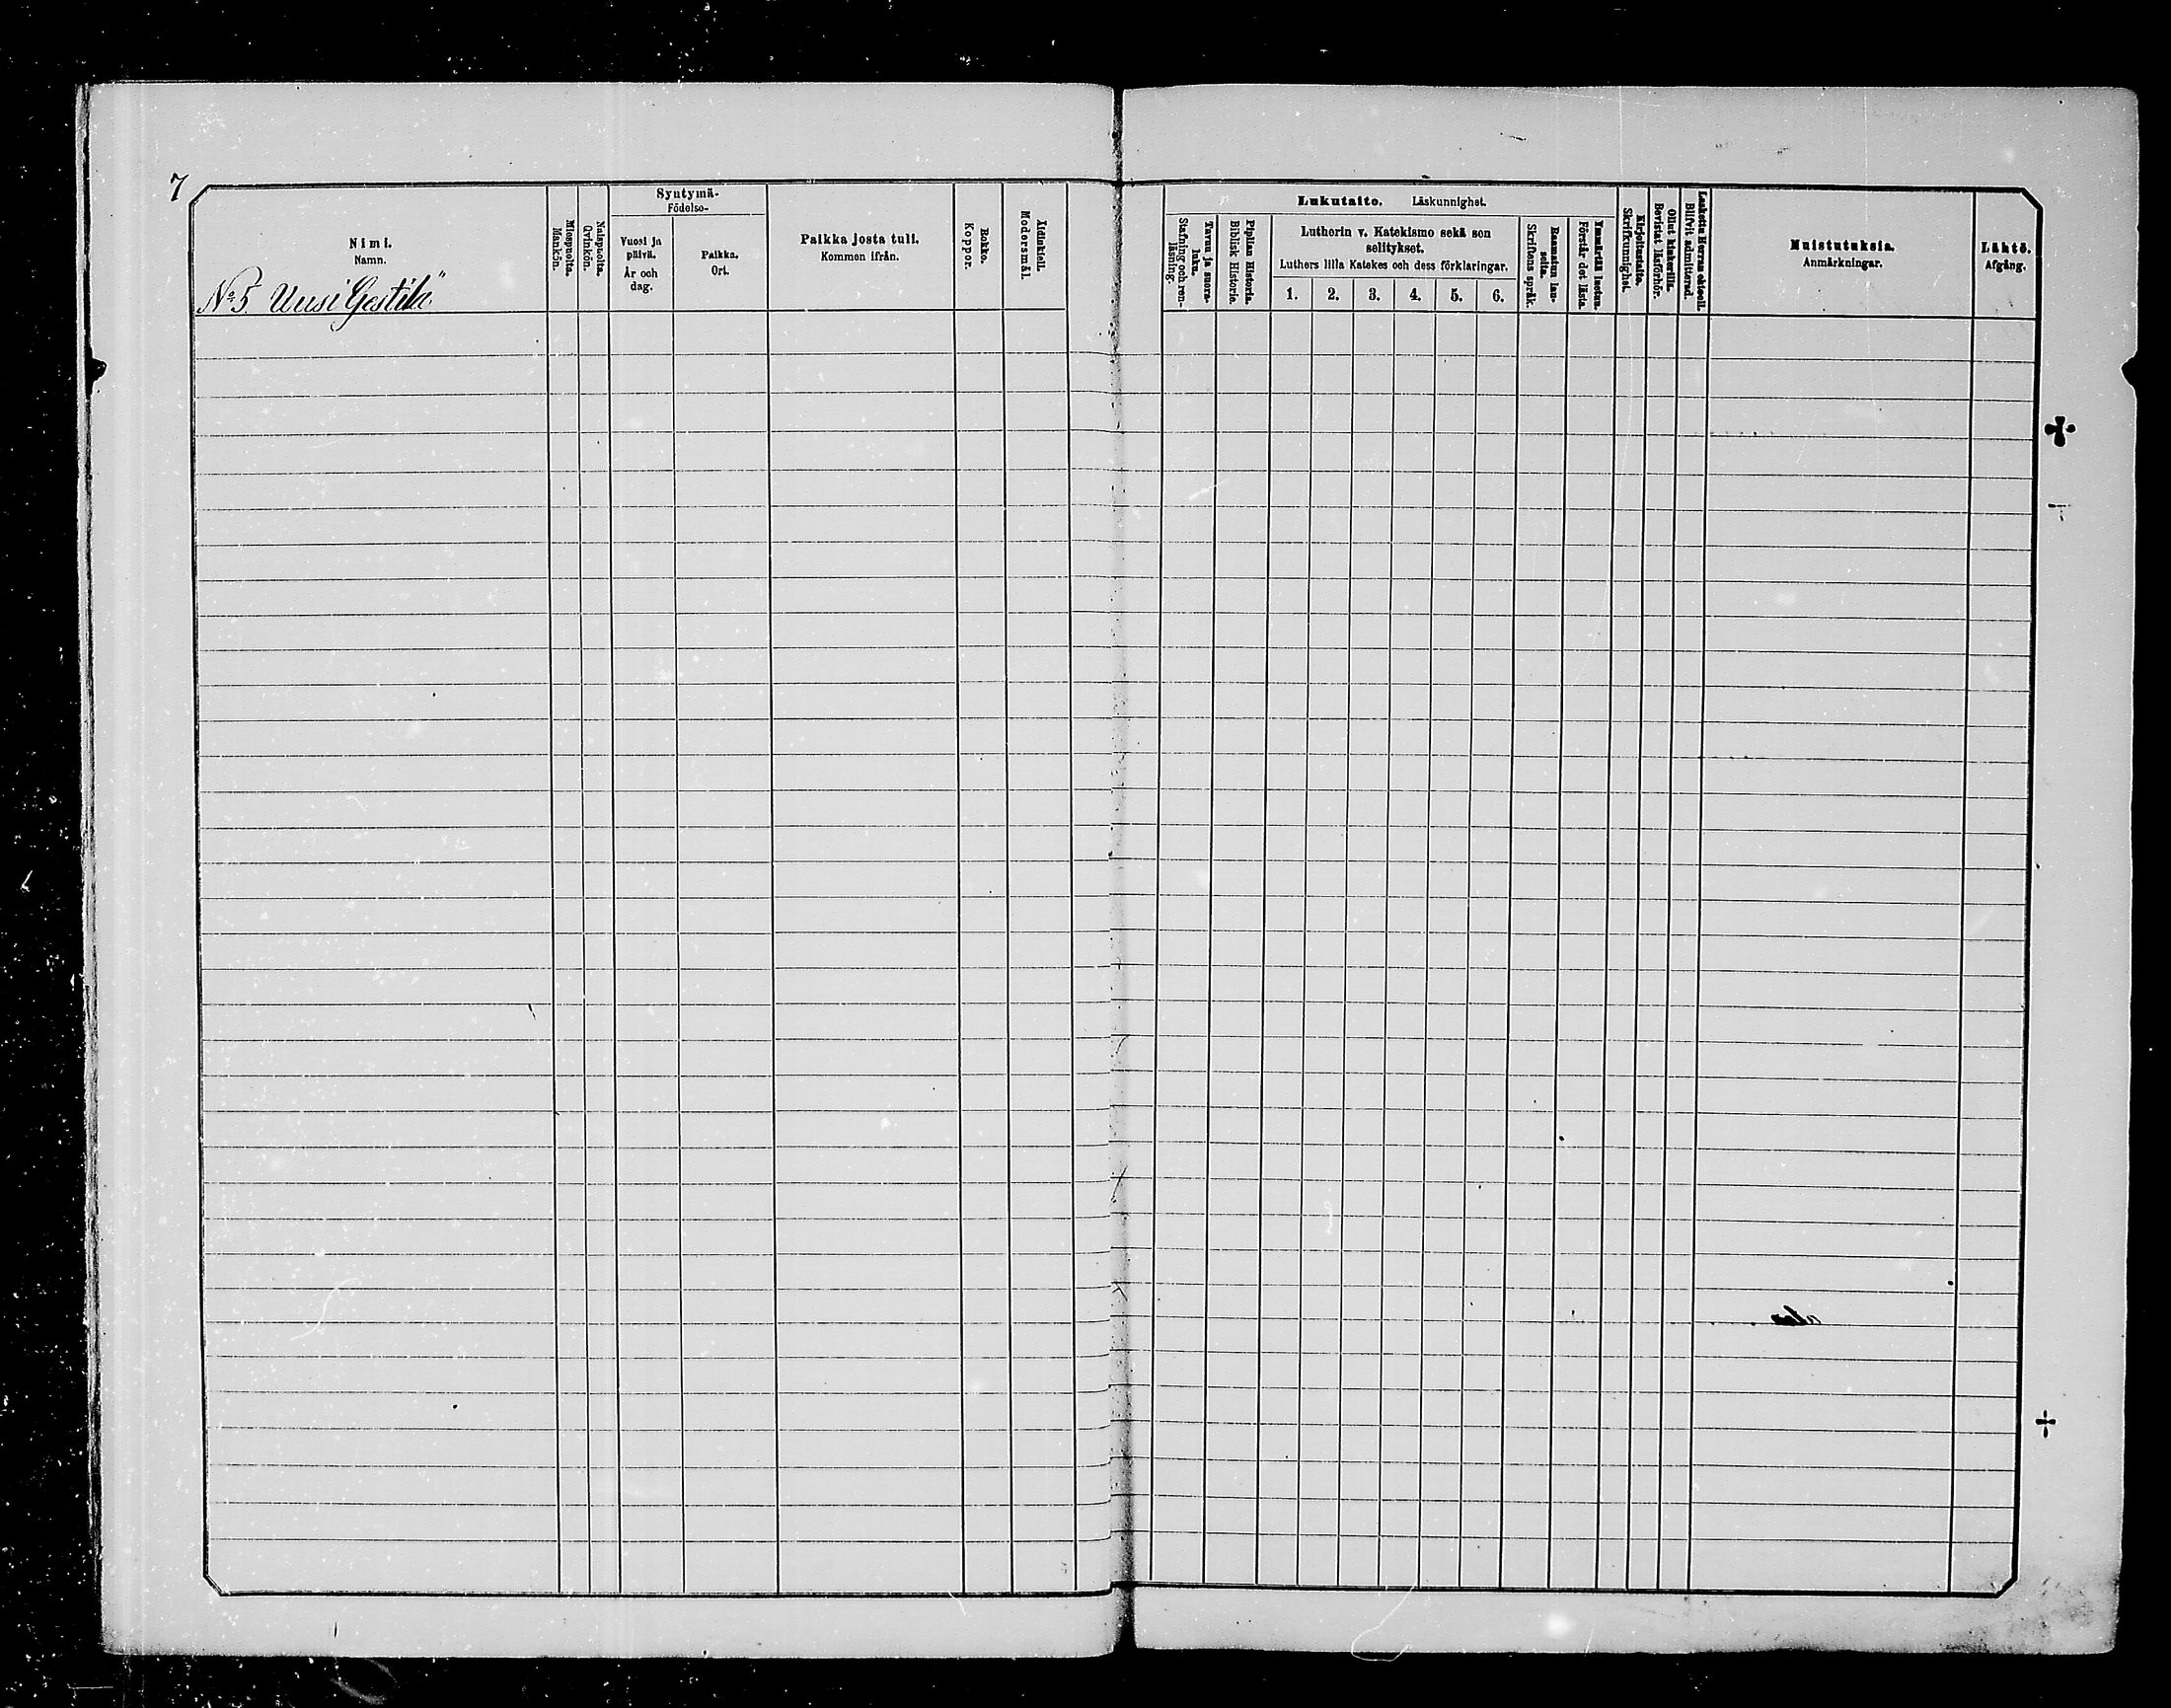 7
Nimi.
Namn.
No 5 Uusi Gestilä
Miespuolta.
Mankön.
Naispuolta.
Qvinkön.
Syntymä-
Födelse-
Vuosi ja
päivä.
År och
dag.
Paikka.
Ort.
Paikka josta tuli.
Kommen ifrån.
Rokko.
Koppor.
Äidinkieli.
Modersmål.
Lukutaito. Läskunnighet.
Tavuu ja suora-
luku.
Stafning och ren-
läsning.
Piplian Historia.
Biblisk Historie.
Lutherin v. Katekismo sekä sen
selitykset.
Luthers lilla Katekes och dess förklaringar.
1. 2. 3. 4. 5. 6.
Raamatun lau-
seita.
Skriftens språk.
Ymmärtää luetun.
Förstår det lästa.
Kirjoitustaito.
Skrifkunnighet.
Ollut kinkerillä.
Bevistat läsförhör.
Laskettu Herran ehtooll.
Blifvit admitterad.
Muistutuksia.
Anmärkningar.
Lähtö.
Afgång.